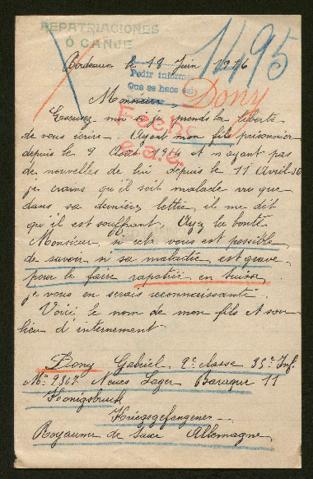 REPATRIACIONES
Ó CANJE
1495
Bordeaux le 18 Juin 1916
Pedir informes
Que se hace
Dony
Monsieur
Excusez moi si je prends la liberté
de vous écrire. Ayant mon fils prisonnier
depuis le 9 Août 1914 et n'ayant pas
de nouvelles de lui depuis le 11 Avril 16
je crains qu'il soit malade vu que
dans sa dernière lettre, il me dit
qu'il est souffrant. Ayez la bonté
Monsieur si cela vous est possible
de savoir si sa maladie est grave
pour le faire rapatrier en Suisse,
je vous en serais reconnaissante.
Voici, le nom de mon fils et son
lieu d'internement
Dony Gabriel 2e classe 35e Inf.
No 9369 Neues Lager Baraque 11
Koenigsbruck
Kriegsgefangener
Royaume de Saxe Allemagne